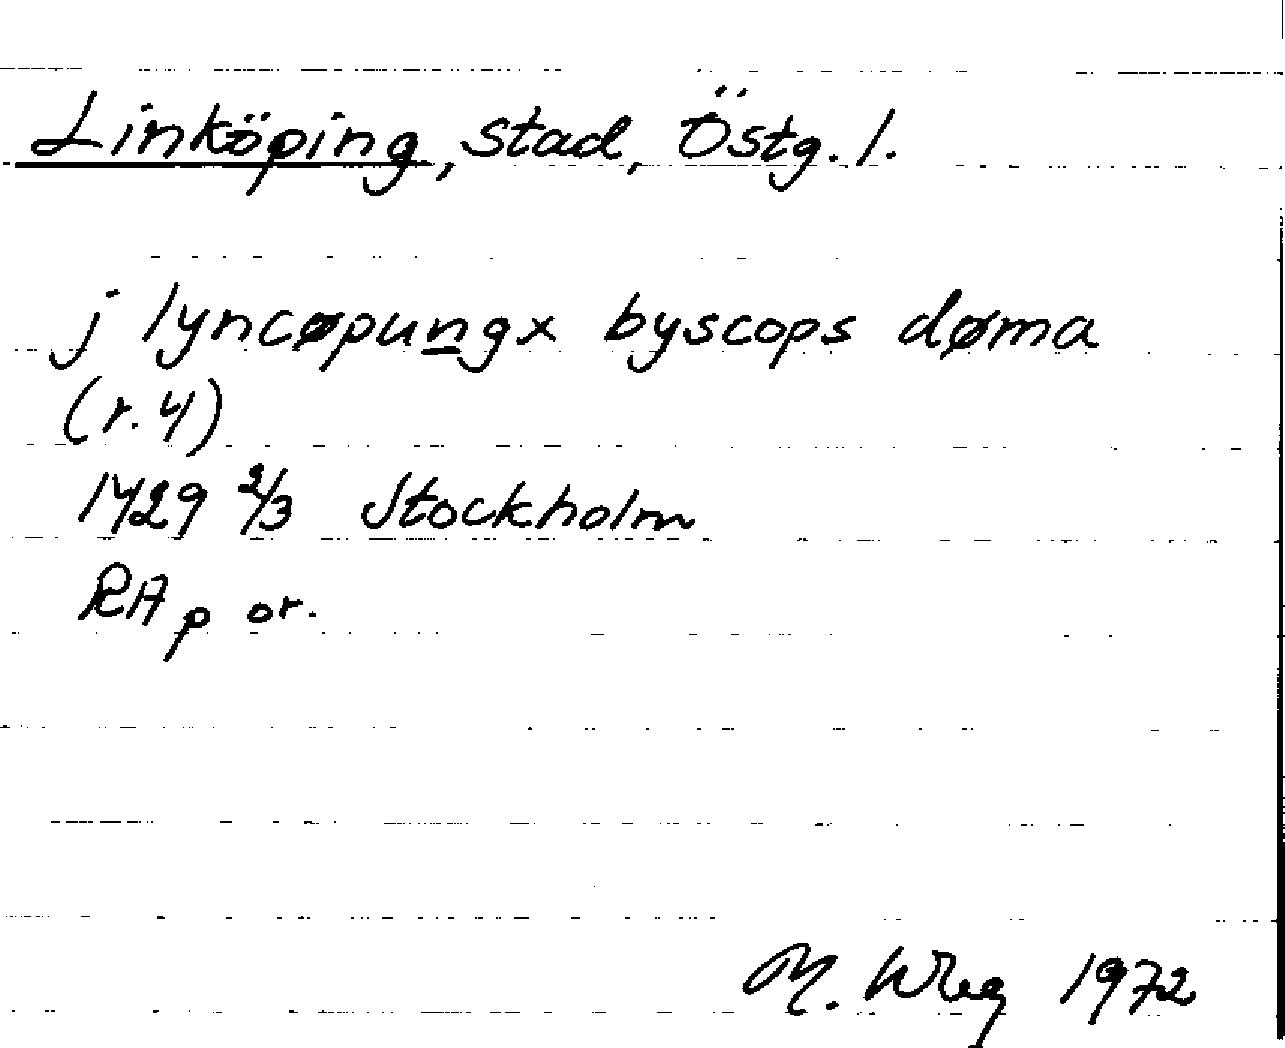 Linköping, stad, Östg. l.
j lyncøpungx byscops døma
(r. 4)
1429 2/3 Stockholm
RAp or.
M. 1972